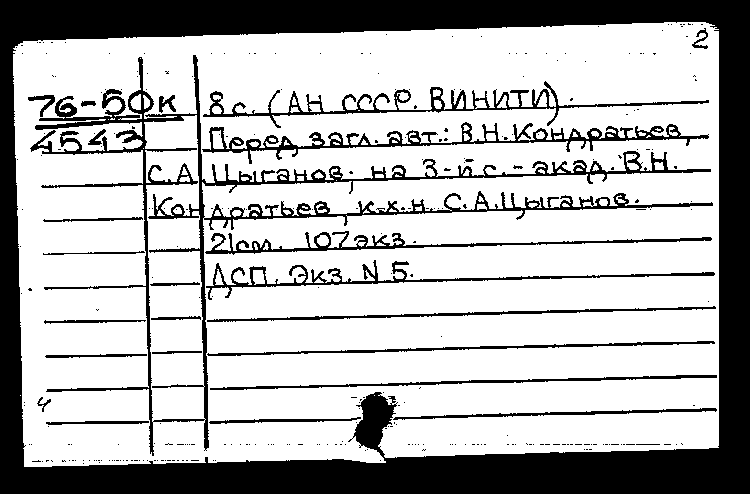 2
76-50к 8с. (АН СССР. ВИНИТИ).
4543 Перед загл. авт.: В.Н.Кондратьев,
С.А. Цыганов; на 3-й с. - акад. В.Н.
Кондратьев, к.х.н. С.А.Цыганов.
21см. 107экз.
ДСП. Экз. N 5.
4